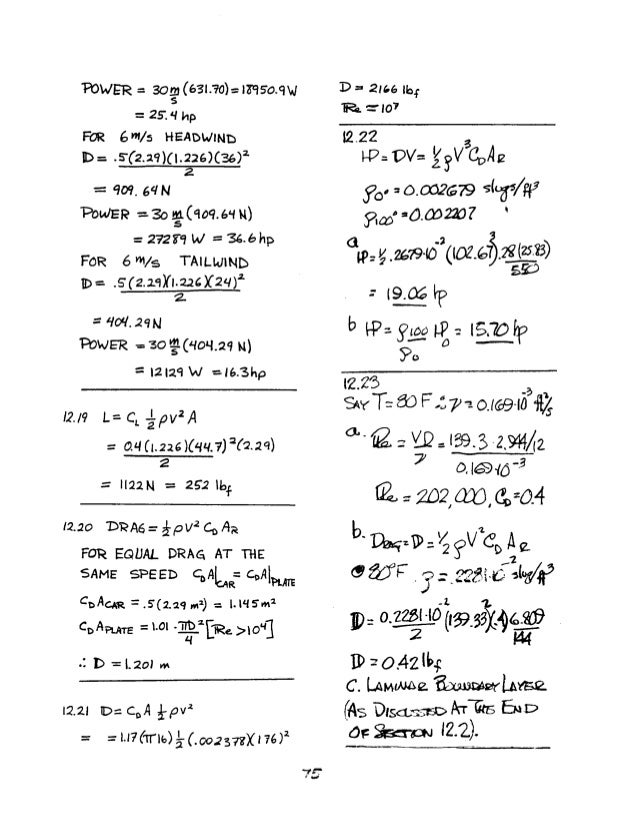 POWER = 30 m/s (631.70) = 18950.9 W
= 25.4 hp
FOR 6 m/s HEADWIND
D = .5(2.29)(1.226)(36)²/2
= 909.64 N
POWER = 30 m/s (909.64 N)
= 27289 W = 36.6 hp
FOR 6 m/s TAILWIND
D = .5(2.29)(1.226)(24)²/2
= 404.29 N
POWER = 30 m/s (404.29 N)
= 12129 W = 16.3 hp
12.19 L = C_L ½ ρv² A
= 0.4(1.226)(44.7)²(2.29)/2
= 1122 N = 252 lbf
12.20 DRAG = ½ρv² C_D A_R
FOR EQUAL DRAG AT THE
SAME SPEED C_DA|CAR = C_DA|PLATE
C_D A_CAR = .5(2.29 m²) = 1.145 m²
C_D A_PLATE = 1.01 · πD²/4 [Re > 10⁴]
∴ D = 1.201 m
12.21 D = C_D A ½ρv²
= = 1.17(π16)½(.002378)(176)²
D = 2166 lbf
Re ≅ 10⁷
12.22
HP = DV = ½ρV³C_D A_R
ρ₀° = 0.002679 slugs/ft³
ρ₁₀₀° = 0.002207
a HP = ½ .2679·10⁻² (102.67)³ .28(25.83)/550
= 19.06 hp
b HP = ρ₁₀₀/ρ₀ HP₀ = 15.70 hp
12.23
SAY T = 80 F ∴ ν = 0.169·10⁻³ ft²/s
a. Re = VD/ν = 139.3 · 2.944/12 / 0.169·10⁻³
Re = 202,000, C_D = 0.4
b. Drag = D = ½ρV²C_D A_R
@ 80°F ρ = .2281·10⁻² slug/ft³
D = 0.2281·10⁻²/2 (139.33)²(.4) 6.809/144
D = 0.42 lbf
C. LAMINAR BOUNDARY LAYER
(AS DISCUSSED AT THE END
OF SECTION 12.2).
75